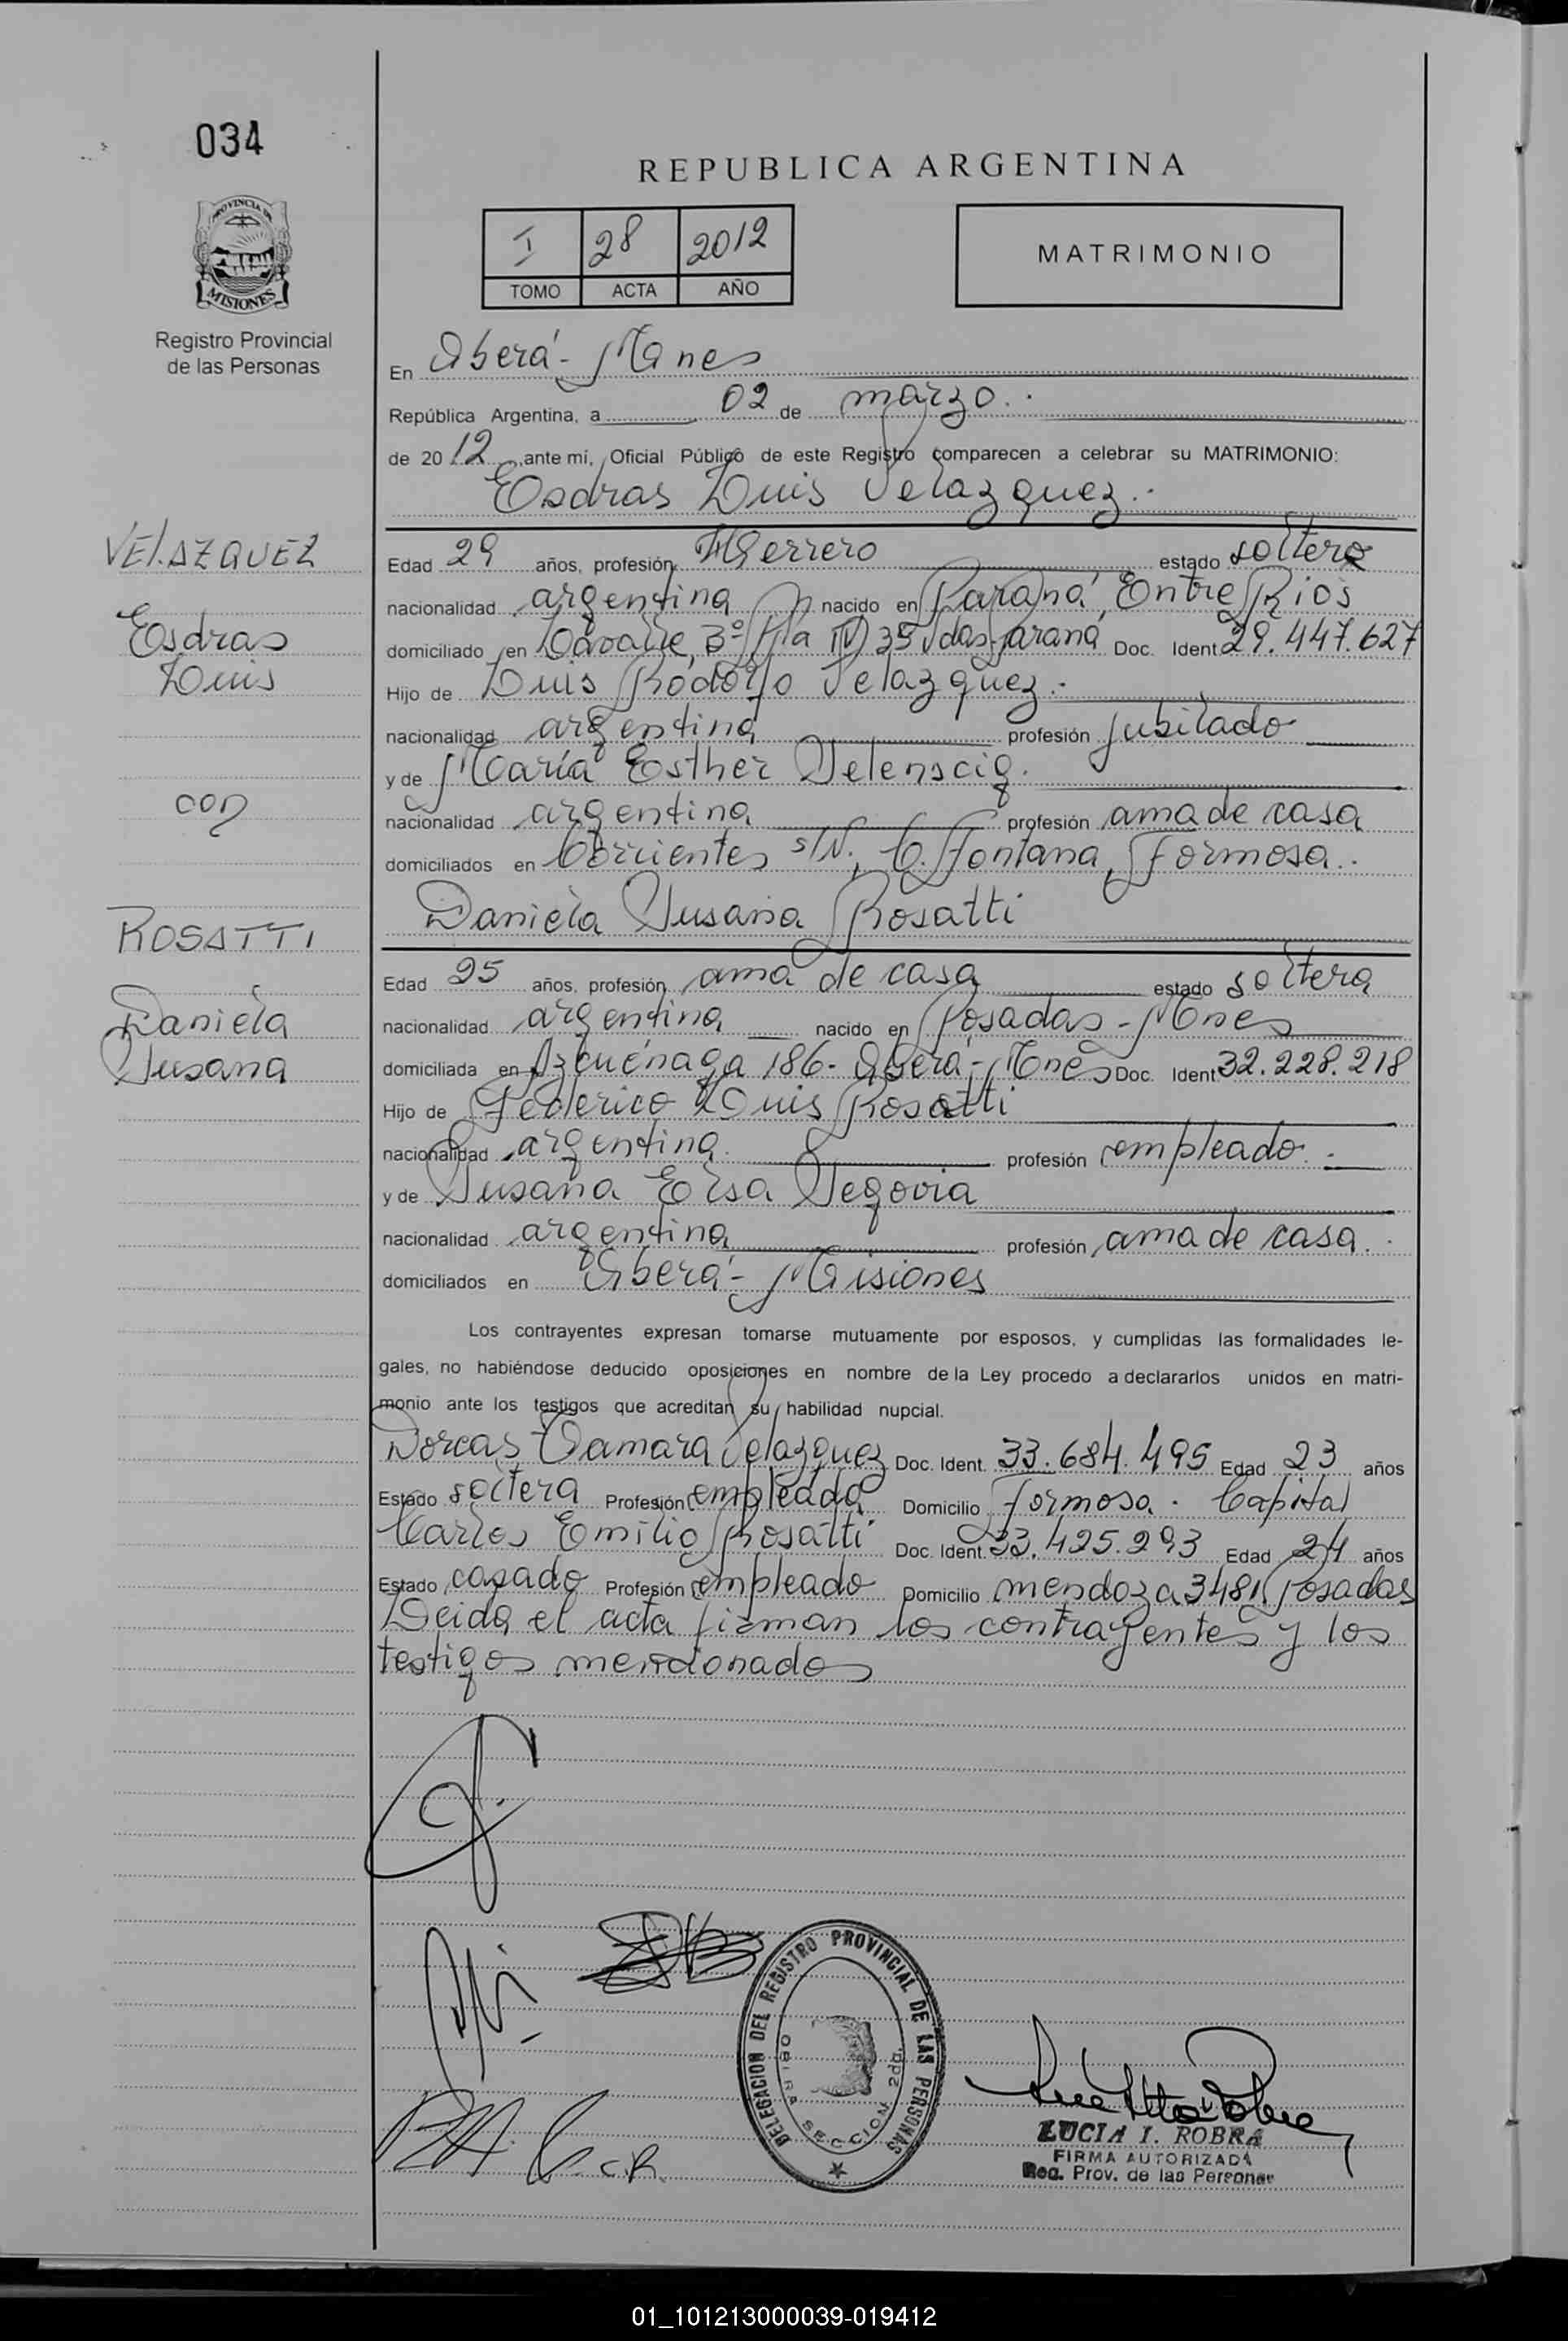 034
PROVINCIA DE
MISIONES
Registro Provincial
de las Personas
REPUBLICA ARGENTINA
I 28 2012
TOMO ACTA AÑO
MATRIMONIO
En Oberá - Mnes
República Argentina, a 02 de marzo.
de 2012, ante mí, Oficial Público de este Registro comparecen a celebrar su MATRIMONIO:
Esdras Luis Velazquez.-
VELAZQUEZ
Esdras
Luis
con
ROSATTI
Daniela
Susana
Edad 29 años, profesión Herrero estado soltero
nacionalidad argentina nacido en Paraná, Entre Ríos
domiciliado en Lavalle, 3º IV 35 Paraná Doc. Ident 29.447.627
Hijo de Luis Rodolfo Velazquez.-
nacionalidad argentina profesión jubilado
y de María Esther
nacionalidad argentina profesión ama de casa
domiciliados en Corrientes s/N., C. Fontana, Formosa.
Daniela Susana Rosatti
Edad 25 años, profesión ama de casa estado soltera
nacionalidad argentina nacido en Posadas - Mnes
domiciliada en Azcuénaga 186 - Oberá - Mnes Doc. Ident 32.228.218
Hijo de Federico Luis Rosatti
nacionalidad argentina profesión empleado.-
y de Susana Elsa Segovia
nacionalidad argentina profesión ama de casa.
domiciliados en Oberá - Misiones
Los contrayentes expresan tomarse mutuamente por esposos, y cumplidas las formalidades le-
gales, no habiéndose deducido oposiciones en nombre de la Ley procedo a declararlos unidos en matri-
monio ante los testigos que acreditan su habilidad nupcial.
Dorcas Tamara Velazquez Doc. Ident. 33.684.495 Edad 23 años
Estado soltera Profesión empleada Domicilio Formosa. Capital
Carlos Emilio Rosatti Doc. Ident. 33.425.293 Edad 24 años
Estado casado Profesión empleado Domicilio mendoza 3481, Posadas
Leida el acta firman los contrayentes y los
testigos mencionados
DELEGACION DEL REGISTRO PROVINCIAL DE LAS PERSONAS
OBERA SECCION 2da.
LUCIA I. ROBRA
FIRMA AUTORIZADA
Reg. Prov. de las Personas
01_101213000039-019412